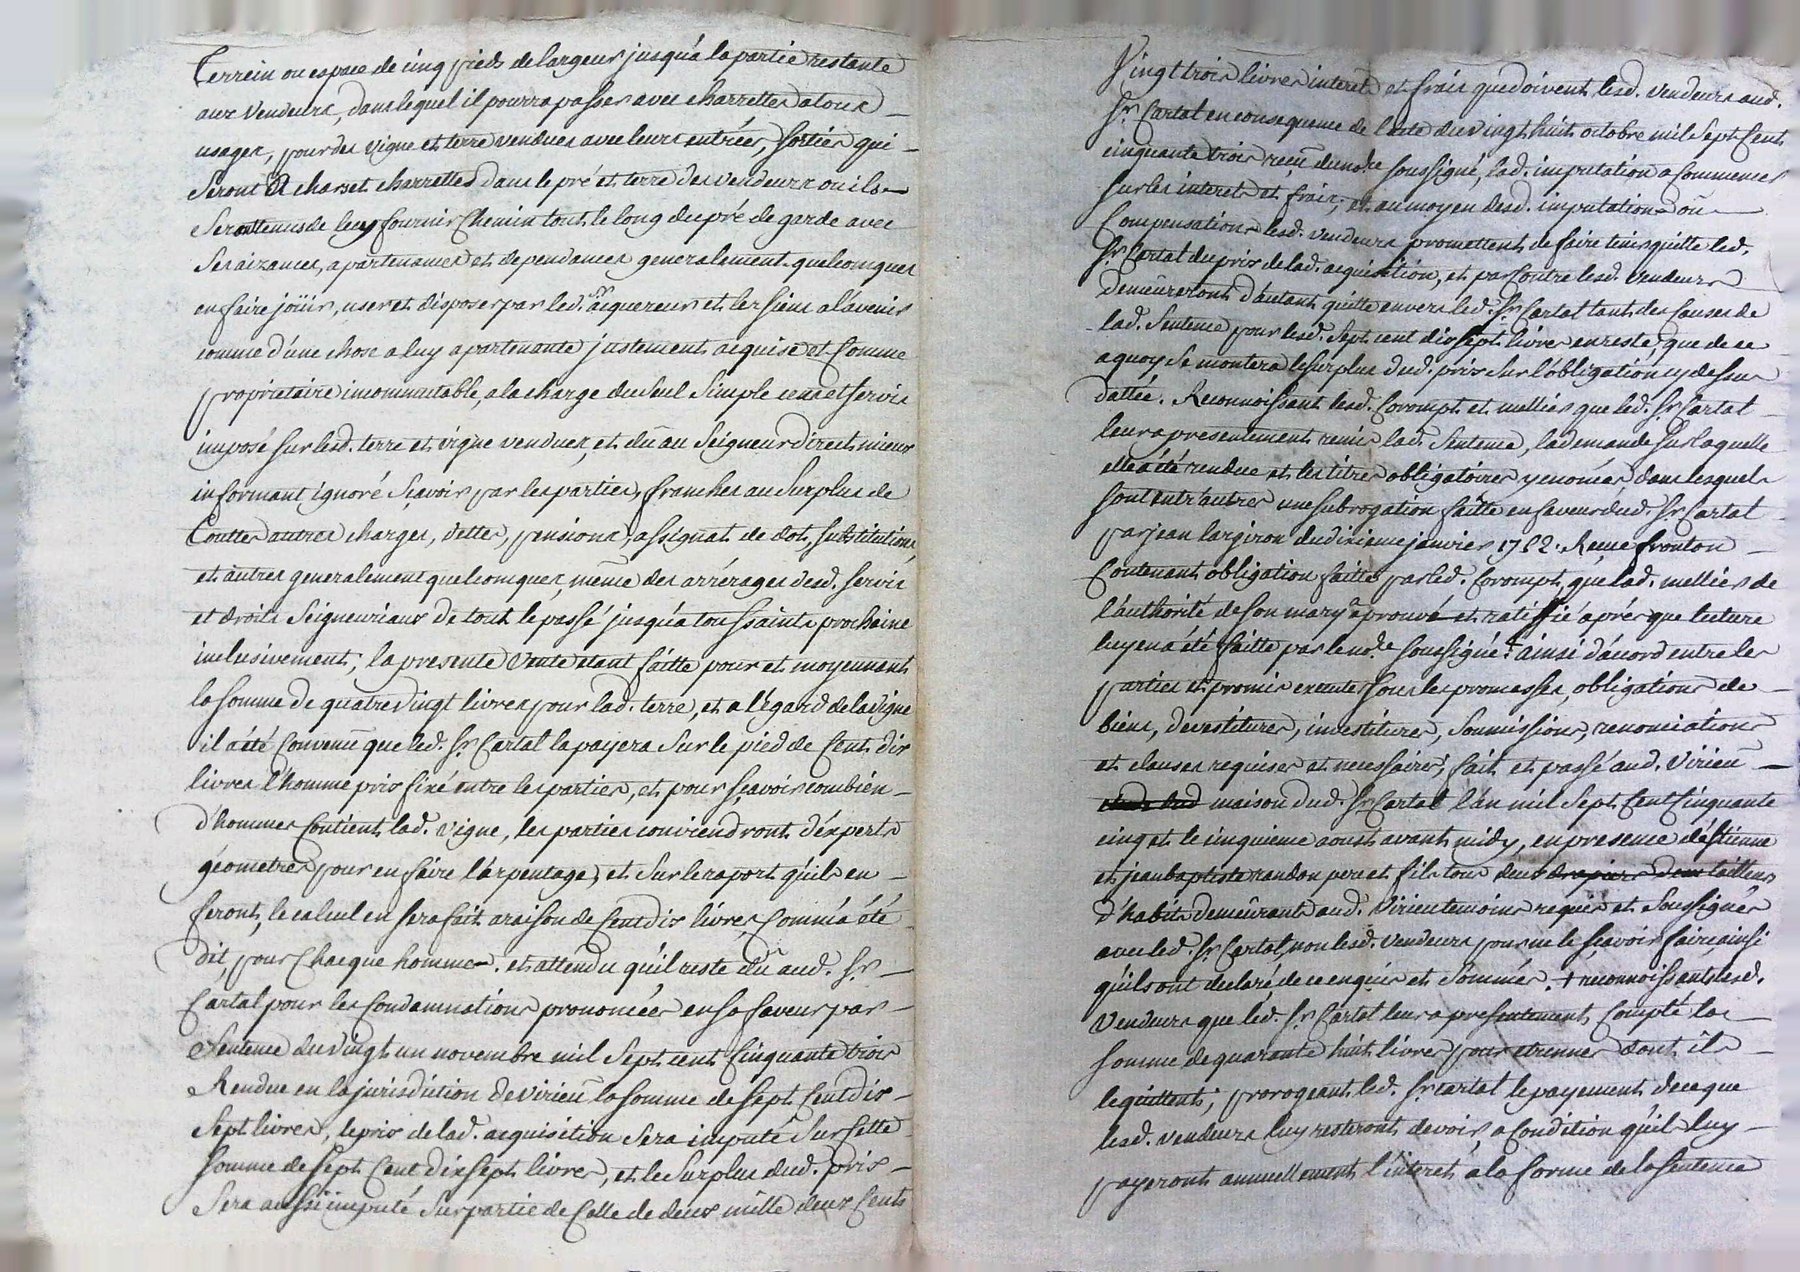 Terrein ou espace de cinq pieds de largeur jusqu'a la partie restante
aux Vendeurs, dans lequel il pourra passer avec charrettes a tous
usages, pour des vigne et terre vendues avec leurs entrées, sorties qui
seront a chars et charrettes dans le pré et terre des vendeurs ou ils
seront tenus de leur fournir Chemin tout le long du pré de garde avec
ses aizances, apartenances et dependances generalement quelconques
en faire joüir, user et disposer par led. Sr aiquereur et les siens a l'avenir
comme d'une chose a luy apartenante justement acquise et Comme
propriétaire incommutable, a la charge du seul simple cens et servis
imposé sur lesd. terre et vigne vendues, et dû au Seigneur direct mieux
informant ignoré Sçavoir par les parties, franches au surplus de
Touttes autres charges, dettes, pensions, assignat de dot, substitutions
et autres generalement quelconques, même des arrérages desd. servis
et droits Seigneuriaux de tout le passé jusqu'a toussaints prochaine
inclusivement; la presente Vente etant faitte pour et moyennant
la somme de quatre vingt livres pour lad. terre, et a l'égard de la vigne
il a été Convenü que led. Sr Cartal la payera Sur le pied de Cent dix
livres l'homme prix fixé entre les parties, et pour sçavoir combien
d'hommes Contient lad. vigne, les parties conviendront d'experts
géometres pour en faire l'arpentage, et Sur le raport qu'ils en
feront, le calcul en sera fait a raison de Cent dix livres Comm'a été
dit, pour Chacque homme. et attendu qu'il reste dû aud. Sr
Cartal pour les Condamnations prononcées en sa faveur par
Sentence du vingt un novembre mil Sept cent Cinquante trois
Rendue en la jurisdiction de Virieü la somme de Sept Cent dix
Sept livres, le prix de lad. acquisition Sera imputé Sur Cette
somme de Sept Cent dix sept livres, et le Surplus dud. prix
Sera aussi imputé Sur partie de Celle de deux mille deux Cents
Vingt trois livres interets et frais que doivent lesd. vendeurs aud.
Sr Cartal en consequence de l'acte du vingt huit octobre mil Sept Cent
cinquante trois reçû du nore soussigné, lad. imputation a commencer
sur les interets et frais; et au moyen desd. imputations oû
Compensations lesd. vendeurs promettent de faire tenir quitte led.
Sr Cartal du prix de lad. acquisition, et par Contre lesd. Vendeurs
demeureront d'autant quitte envers led. Sr Cartal tant des Causes de
lad. Sentence pour lesd. Sept cent dix sept livres en reste, que de ce
a quoy Se montera le surplus dud. prix Sur l'obligation cy dessus
dattée. Reconnoissant lesd. Corompt et mellier que led. Sr Cartal
leur a presentement remis lad. Sentence, la demande sur laquelle
elle a été rendue et les titres obligatoires y enoncés, dans lesquels
sont entr'autres une subrogation faitte en faveur dud. Sr Cartal
par jean largiron du dixieme janvier 1752. Reçue fronton
Contenant obligation faitte par led. Corompt, que lad. mellier de
l'authorité de son mary aprouvé et ratiffié aprés que lecture
luy en a été faitte par le nore soussigné + ainsi d'acord entre les
parties et promis executer sous les promesses, obligations de
biens, devestitures, investitures, Soumissions, renonciations
et clauses requises et necessaires, fait et passé aud. Virieü
maison dud. Sr Cartal l'an mil Sept Cent Cinquante
cinq et le cinquieme aoust avant midy, en presence d'étienne
et jean baptiste randon pere et fils tous deux drapiers d'eux tailleurs
d'habits demeurants aud. Virieu temoins requis et Soussignés
avec led. Sr Cartal, non lesd. Vendeurs pour ne le sçavoir faire, ainsi
qu'ils ont declaré, de ce enquis et Sommés. + reconnoissants lesd.
Vendeurs que led. Sr Cartal leur a presentement Compté la
somme de quarante huit livres pour etrennes dont ils
le quittent; prorogeant led. Sr Cartal le payement de ce que
lesd. Vendeurs luy resteront devoir, a Condition qu'ils luy
payeront annuellement l'interet a la forme de la sentence